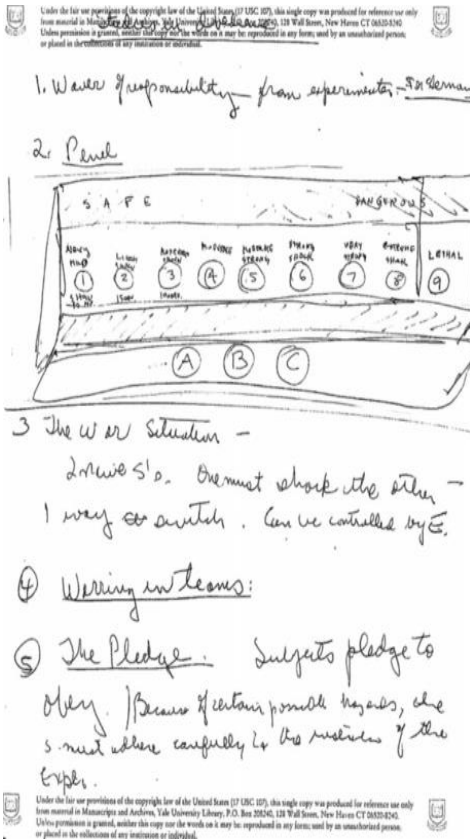 Under the fair use provisions of the copyright law of the United States (17 USC 107), this single copy was produced for reference use only
from material in Manuscripts and Archives, Yale University Library, P.O. Box 208240, 128 Wall Street, New Haven CT 06520-8240.
Unless permission is granted, neither this copy nor the words on it may be reproduced in any form; used by an unauthorized person;
or placed in the collections of any institution or individual.
1. Waver of responsibility from experimenter -
2. Panel
SAFE DANGEROUS
VERY STRONG EXTREME LETHAL
1 2 3 4 5 6 7 8 9
A B C
3 The war situation -
2 naive S's. One must shock the other -
1 way switch. Can be controlled by E.
4 Warring in teams:
5 The Pledge. Subjects pledge to
obey. Because of certain possible hazards, the
S must adhere carefully to the of the
Exper.
Under the fair use provisions of the copyright law of the United States (17 USC 107), this single copy was produced for reference use only
from material in Manuscripts and Archives, Yale University Library, P.O. Box 208240, 128 Wall Street, New Haven CT 06520-8240.
Unless permission is granted, neither this copy nor the words on it may be reproduced in any form; used by an unauthorized person;
or placed in the collections of any institution or individual.